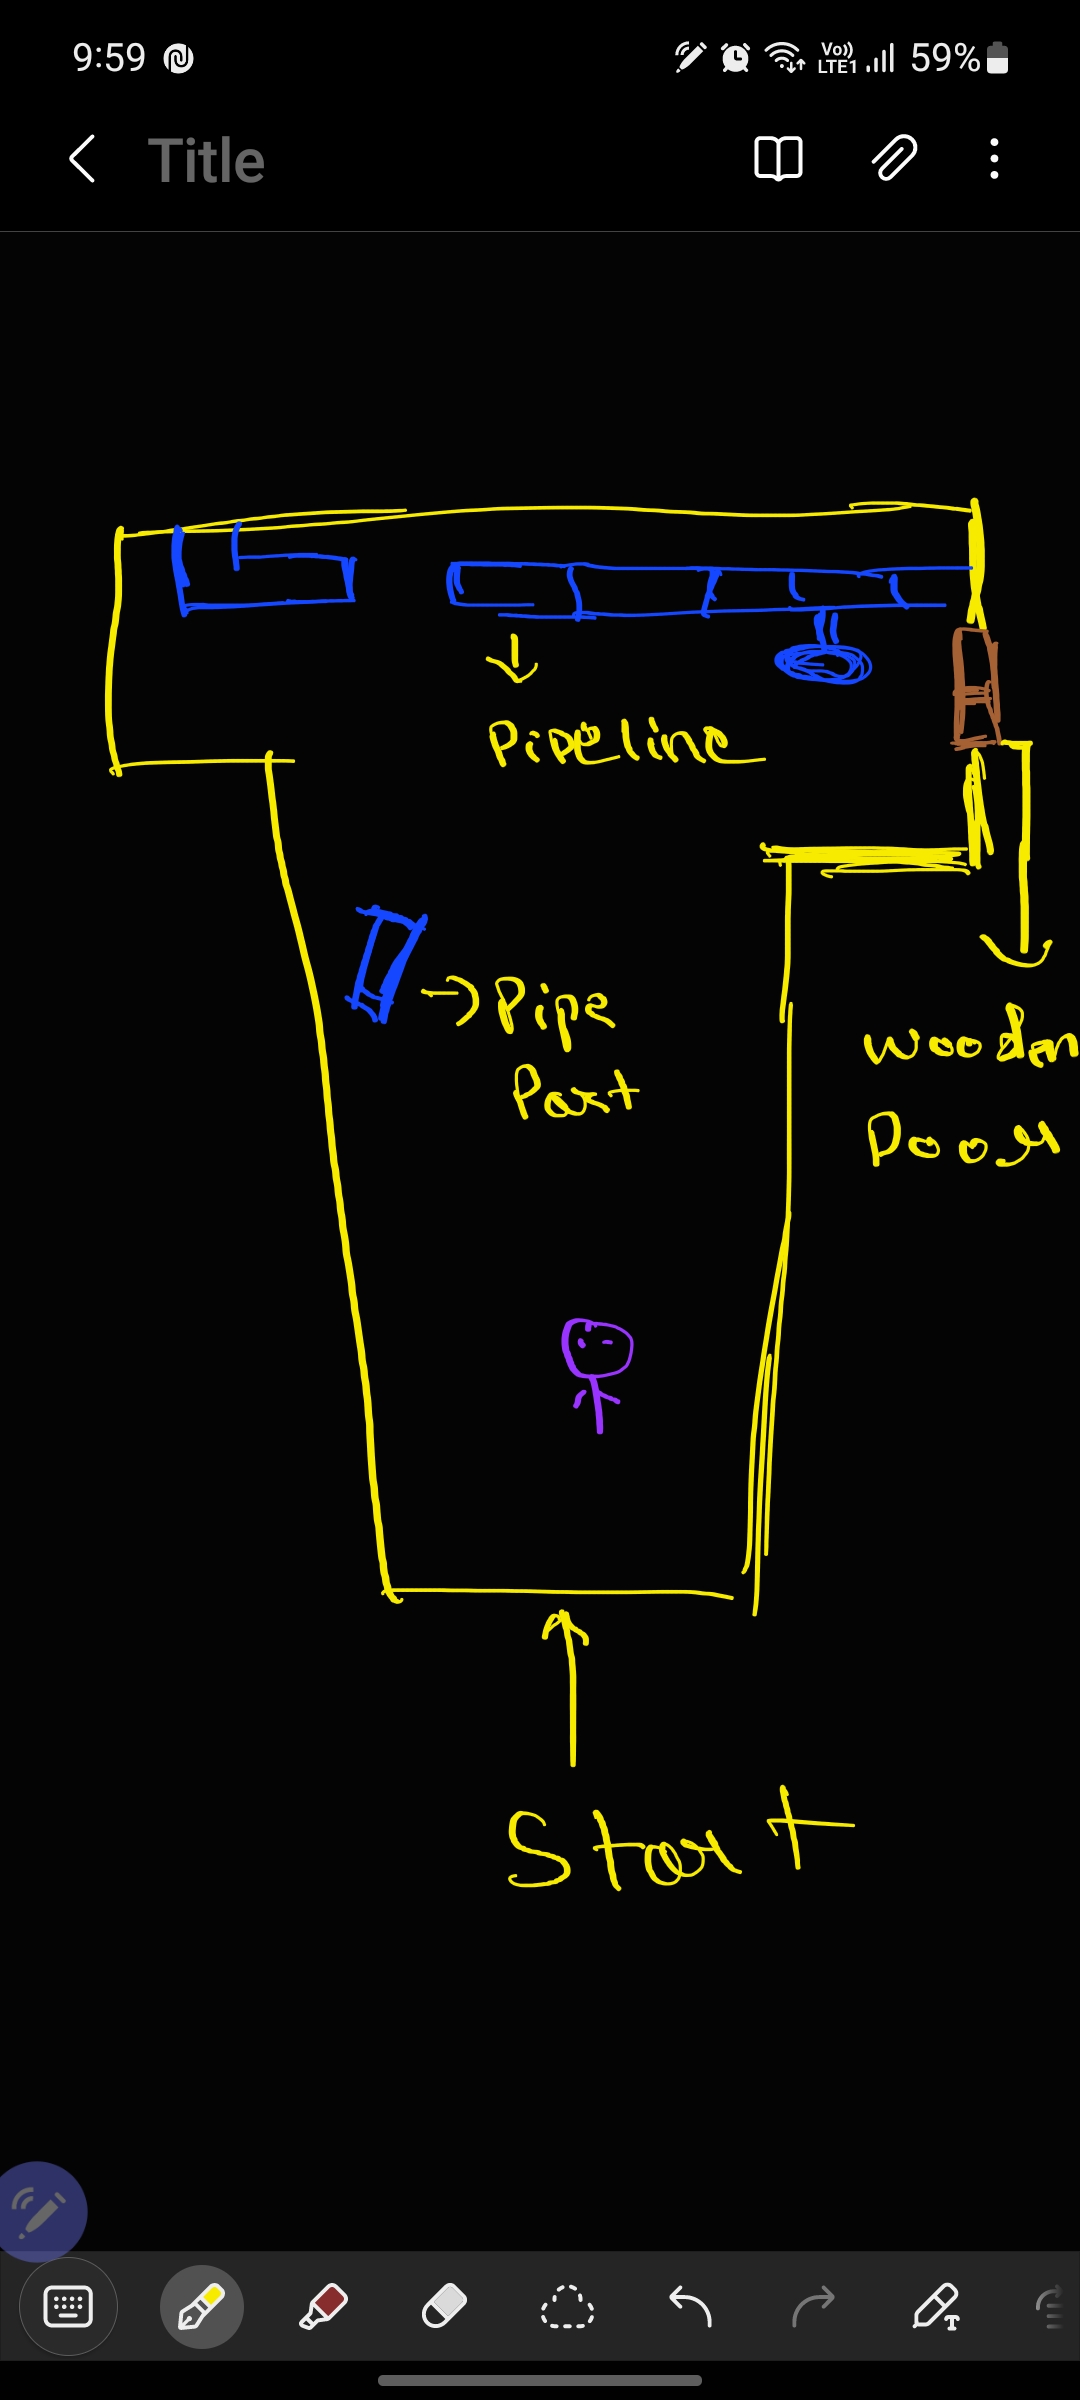 9:59
Vo)) LTE1 59%
Title
Pipeline
Pipe
Part
Wooden
Door
Start
T